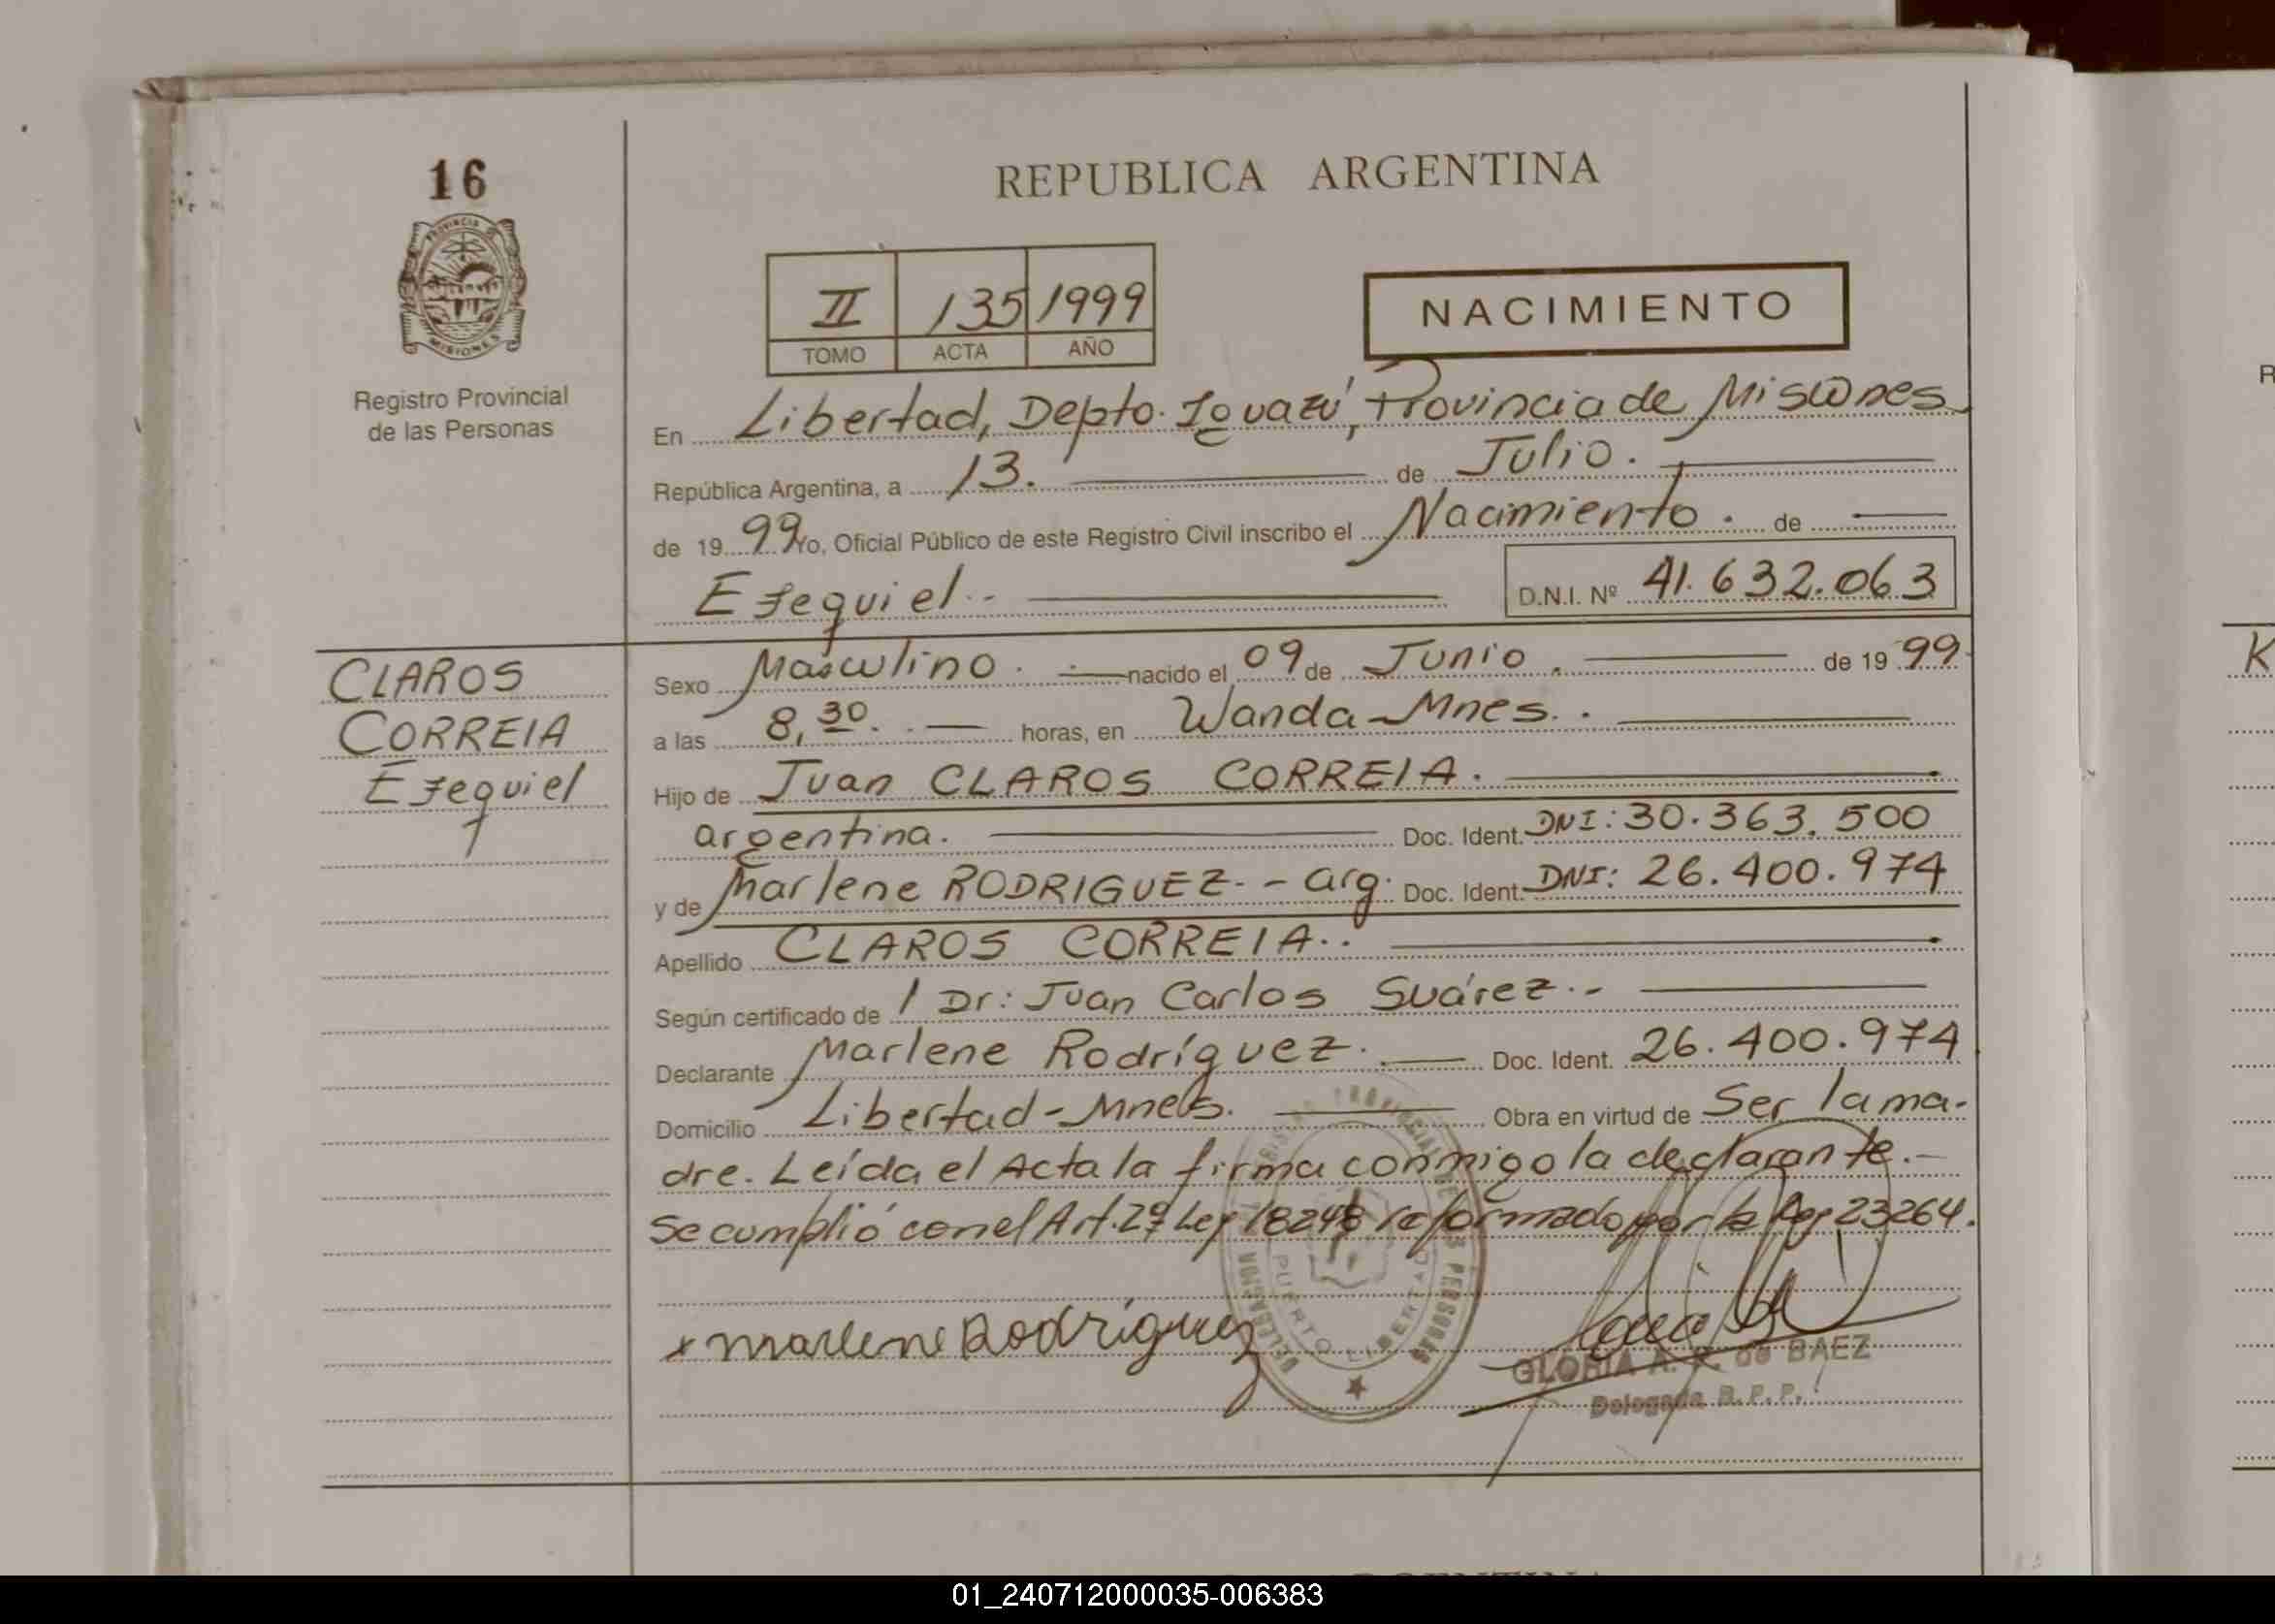 16
PROVINCIA DE
MISIONES
Registro Provincial
de las Personas
REPUBLICA ARGENTINA
II 135 1999
TOMO ACTA AÑO
NACIMIENTO
En Libertad, Depto. Iguazú, Provincia de Misiones
República Argentina, a 13. de Julio.
de 1999 Yo, Oficial Público de este Registro Civil inscribo el Nacimiento. de
Ezequiel.- D.N.I. Nº 41.632.063
CLAROS
CORREIA
Ezequiel
Sexo Masculino. nacido el 09 de Junio. de 1999
a las 8,30. horas, en Wanda-Mnes..
Hijo de Juan CLAROS CORREIA.
argentina. Doc. Ident. DNI: 30.363.500
y de Marlene RODRIGUEZ.- arg. Doc. Ident. DNI: 26.400.974
Apellido CLAROS CORREIA..
Según certificado de / Dr: Juan Carlos Suárez.-
Declarante Marlene Rodríguez. Doc. Ident. 26.400.974
Domicilio Libertad-Mnes. Obra en virtud de Ser la ma-
dre. Leída el Acta la firma conmigo la declarante.-
Se cumplió con el Art. 2º Ley 18248 reformado por la Ley 23264.
x Marlene Rodríguez
PUERTO LIBERTAD
GLORIA A. de BAEZ
Delegada R.P.P.
R
K
01_240712000035-006383